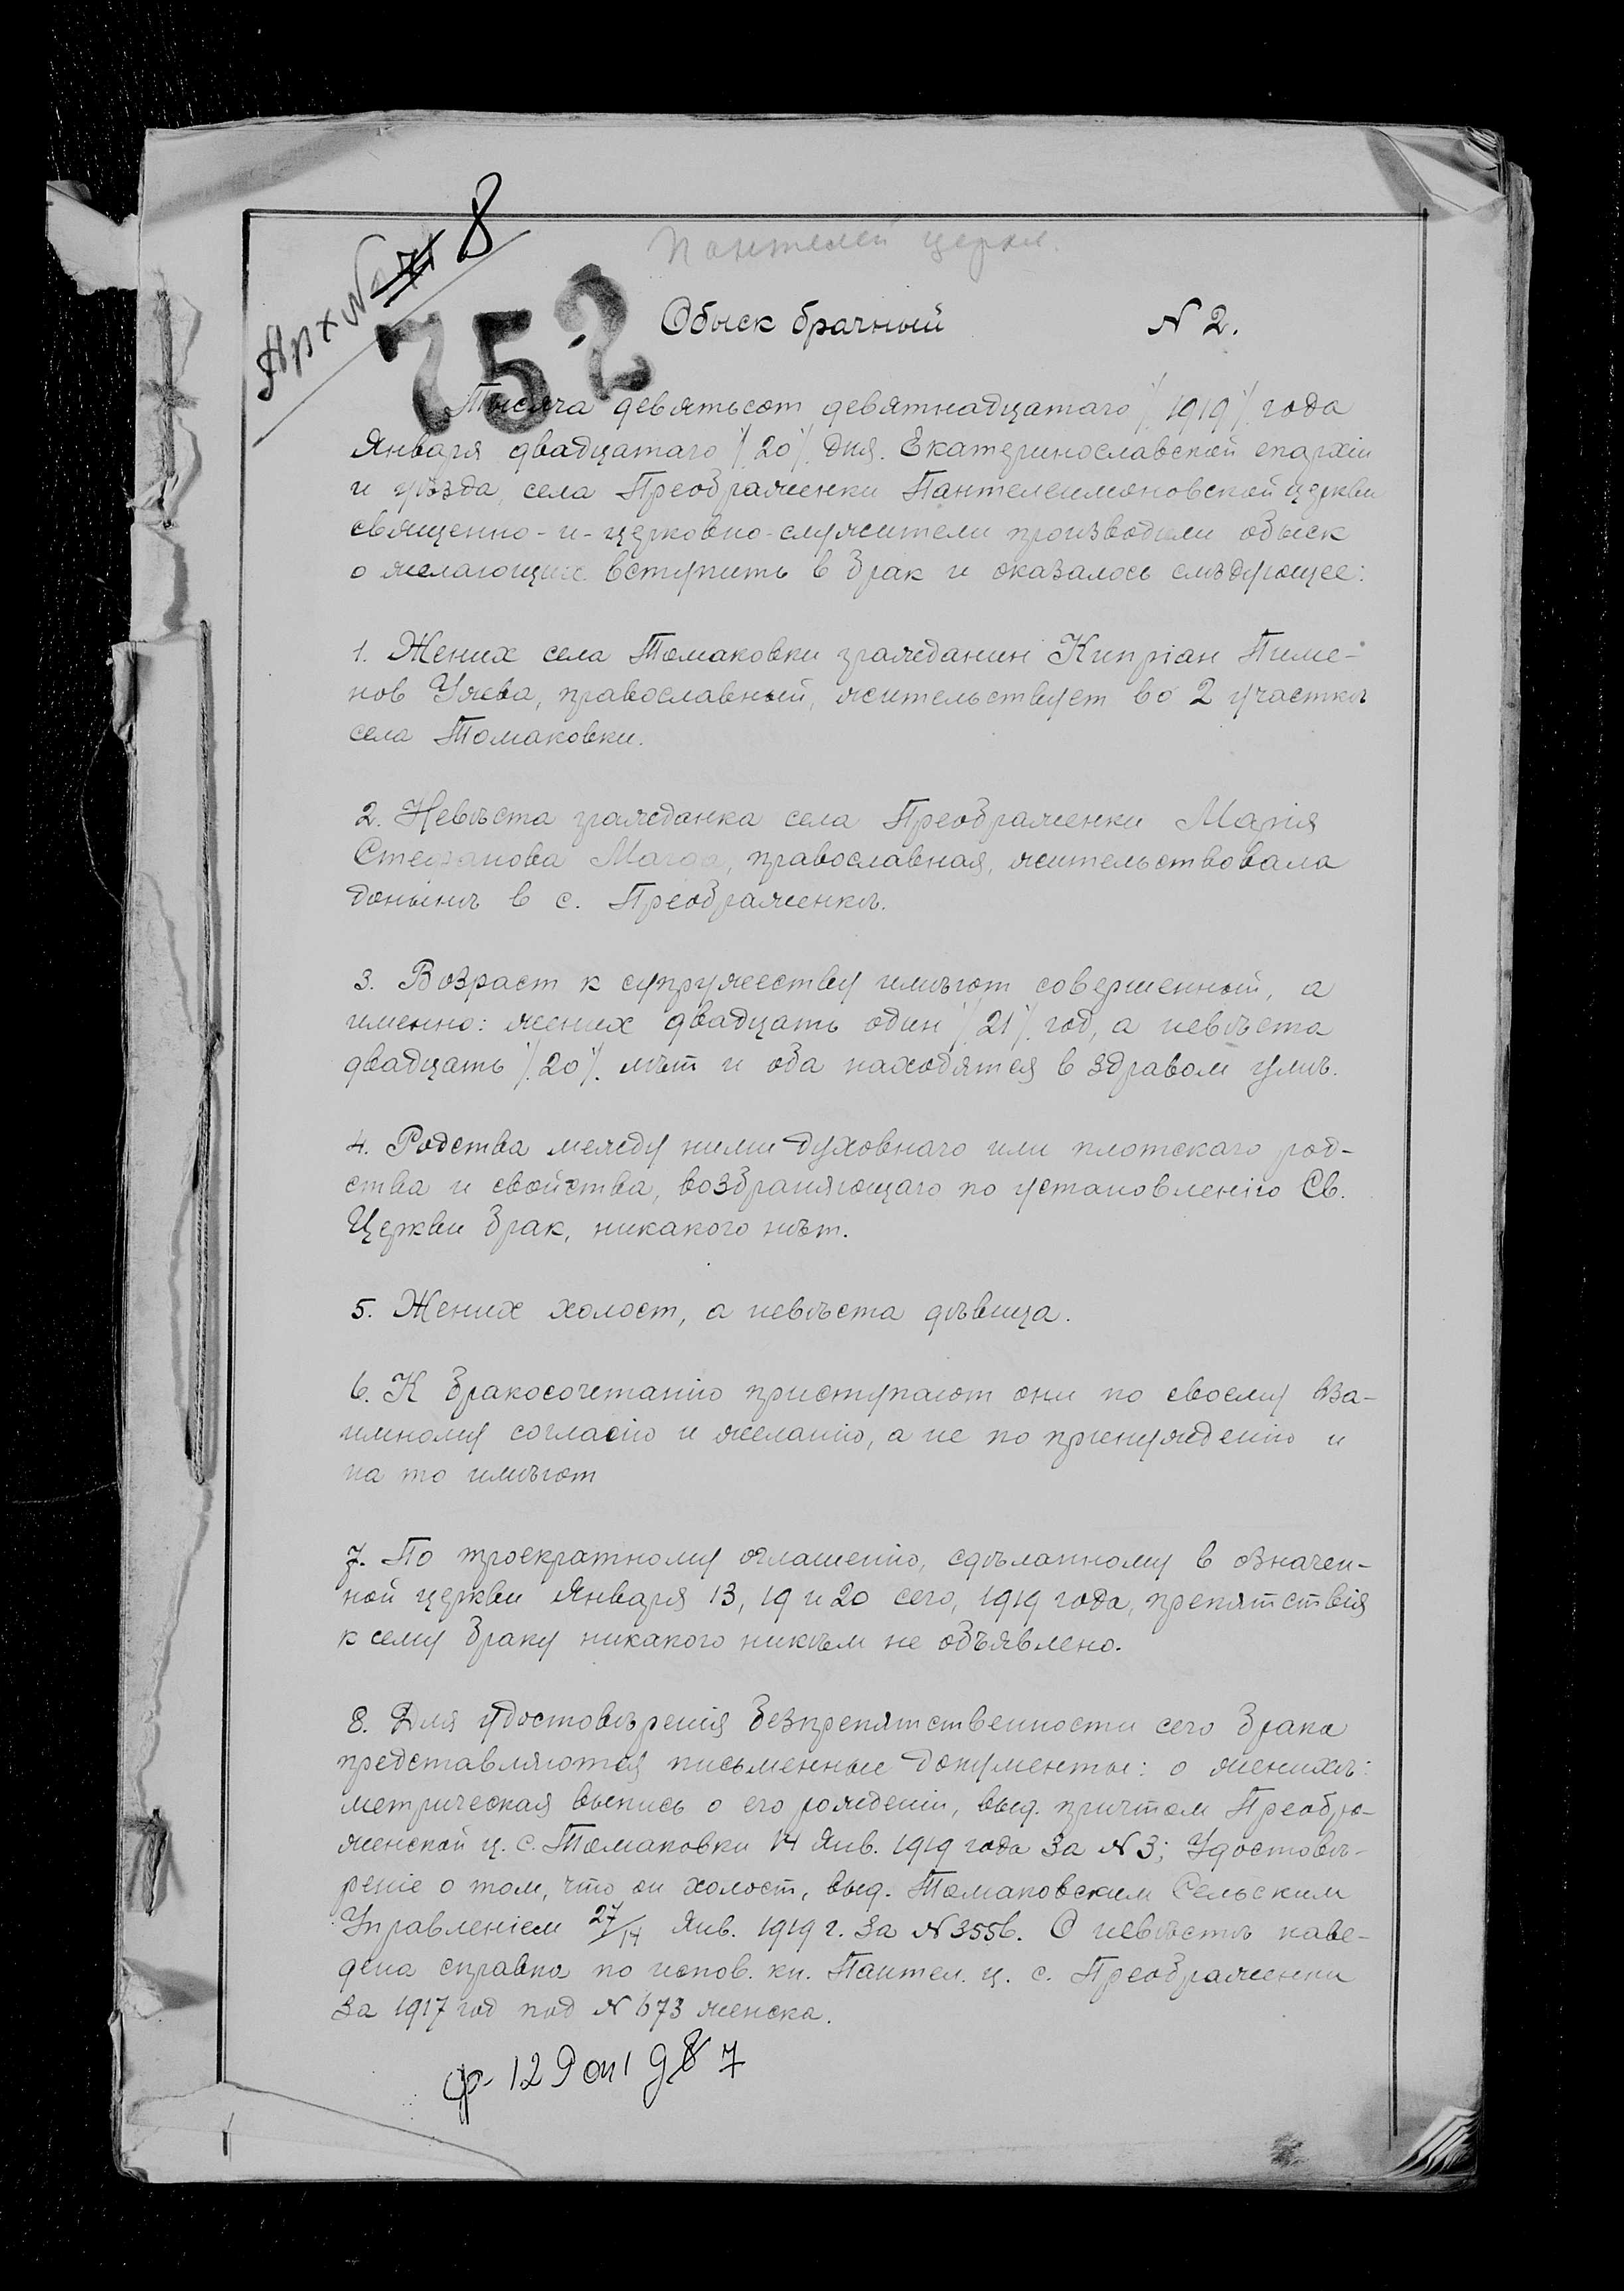 Арх № 71 8
Пантелей церкв.
752
Обыск брачный N 2.
Тысяча девятьсот девятнадцатаго /1919/ года
Января двадцатаго /20/ дня. Екатеринославской епархіи
и уѣзда, села Преображенки Пантелеимоновской церкви
священно-и-церковно-служители производили обыск
о желающих вступить в брак и оказалось слѣдующее:
1. Жених села Томаковки гражданин Кипріан Пиме-
нов Ужева, православный, жительствует во 2 участкѣ
села Томаковки.
2. Невѣста гражданка села Преображенки Марія
Стефанова, православная, жительствовала
донынѣ в с. Преображенкѣ.
3. Возраст к супружеству имѣют совершенный, а
именно: жених двадцать один /21/ год, а невѣста
двадцать /20/ лѣт и оба находятся в здравом умѣ.
4. Родства между ними духовнаго или плотскаго род-
ства и свойства, возбраняющаго по установленію Св.
Церкви брак, никакого нѣт.
5. Жених холост, а невѣста дѣвица.
6. К бракосочетанію приступают они по своему вза-
имному согласію и желанію, а не по принужденію и
на то имѣют
7. По троекратному оглашенію, сдѣланному в означен-
ной церкви Января 13, 19 и 20 сего, 1919 года, препятствія
к сему браку никакого никѣм не объявлено.
8. Для удостовѣренія безпрепятственности сего брака
представляются письменные документы: о женихѣ:
метрическая выпись о его рожденіи, выд. причтом Преобра-
женской ц. с. Томаковки 14 Янв. 1919 года за N 3; Удостовѣ-
реніе о том, что он холост, выд. Томаковским Сельским
Управленіем 27/14 Янв. 1919 г. за N 3556. О невѣстѣ наве-
дена справка по испов. кн. Пантел. ц. с. Преображенки
за 1917 год под N 673 женска.
ф-129 оп1 д8 7